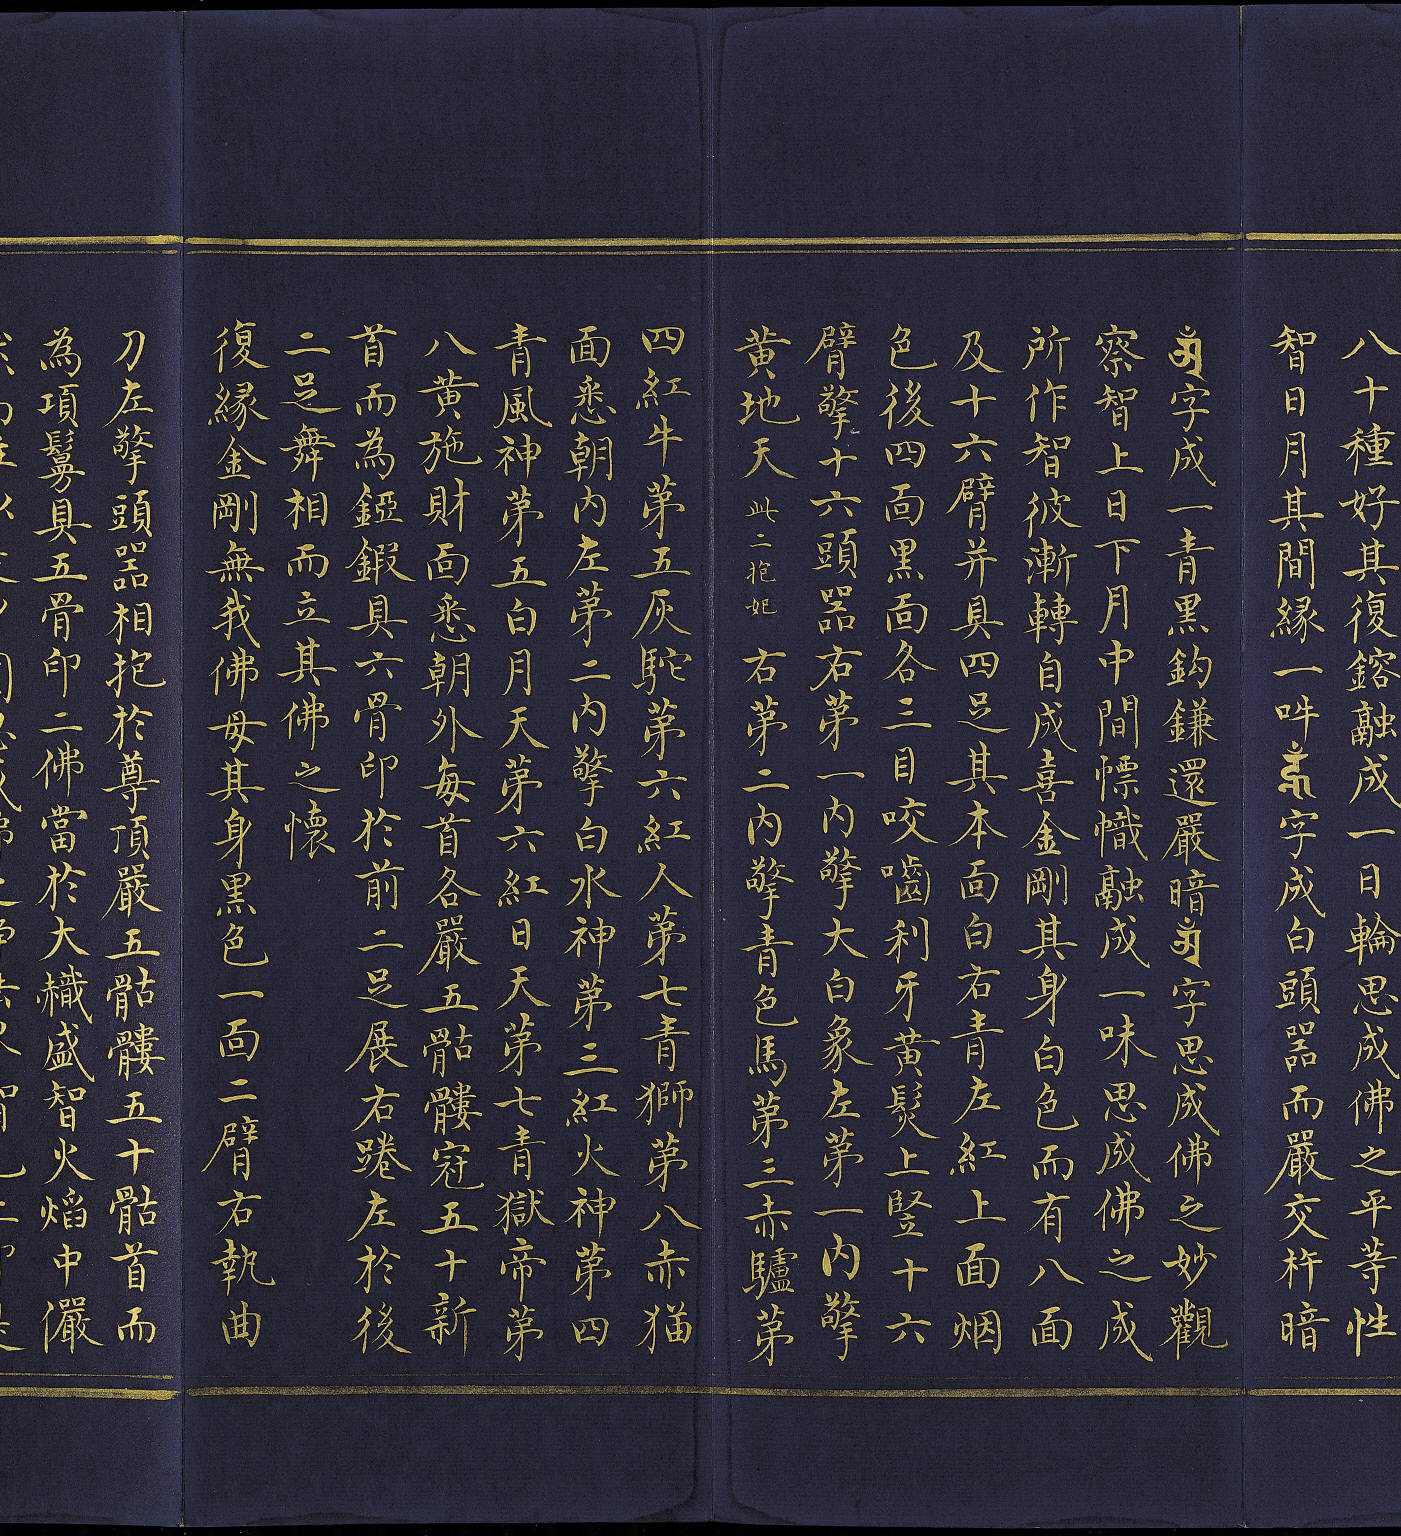 八十種好其復鎔融成一日輪思成佛之平等性
智日月其間緣一吽字成白頭器而嚴交杵暗
字成一青黑鈎鎌還嚴暗字思成佛之妙觀
察智上日下月中間幖幟融成一味思成佛之成
所作智彼漸轉自成喜金剛其身白色而有八面
及十六臂并具四足其本面白右青左紅上面烟
色後四面黑面各三目咬嚙利牙黃髮上竪十六
臂擎十六頭器右第一內擎大白象左第一內擎
黃地天此二抱妃右第二內擎青色馬第三赤驢第
四紅牛第五灰駝第六紅人第七青獅第八赤猫
面悉朝內左第二內擎白水神第三紅火神第四
青風神第五白月天第六紅日天第七青獄帝第
八黃施財面悉朝外每首各嚴五骷髏冠五十新
首而為鎠鍜具六骨印於前二足展右踡左於後
二足舞相而立其佛之懷
復緣金剛無我佛母其身黑色一面二臂右執曲
刀左擎頭器相抱於尊頂嚴五骷髏五十骷首而
為項鬘具五骨印二佛當於大熾盛智火焰中儼